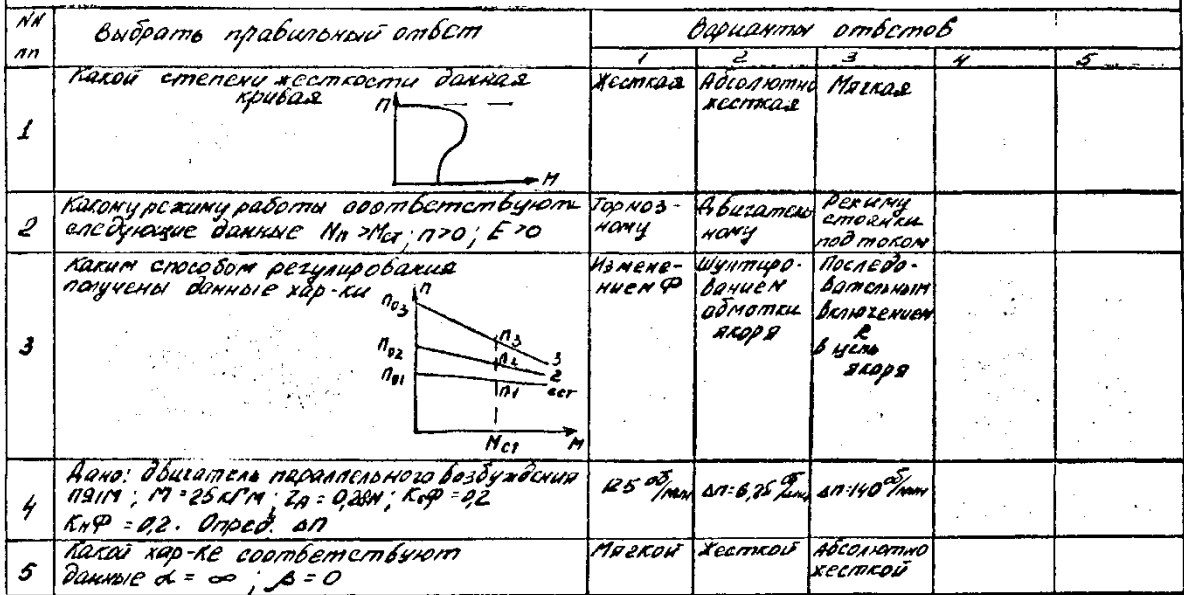 NN Выбрать правильный ответ Варианты ответов
пп 1 2 3 4 5
1 Какой степени жесткости данная кривая
n
M
Жесткая
Абсолютно жесткая
Мягкая
2 Какому режиму работы соответствуют
следующие данные Mп >Mст; n>0; E>0
Тормоз-
ному
Двигатель
ному
Режиму
стоянки
под током
3 Каким способом регулирования
получены данные хар-ки
n
n03
n02
n01
n3
n2
n1
3
2
ест
Mст
M
Измене-
нием Ф
Шунтиро-
ванием
обмотки
якоря
Последо-
вательным
включением
R
в цепь
якоря
4 Дано: двигатель параллельного возбуждения
П91М; М=25кГм;
KнФ=0,2. Опред. Δn
125 об/мин
Δn=6,25
Δn=140 об/мин
5 Какой хар-ке соответствуют
данные α = ∞; β = 0
Мягкой
Жесткой
Абсолютно
жесткой